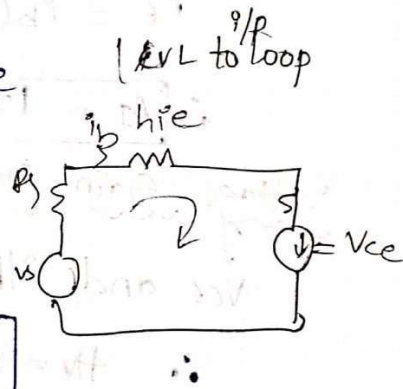 i/p
KVL to loop
ib hie
Rs
vs
= Vce
∴